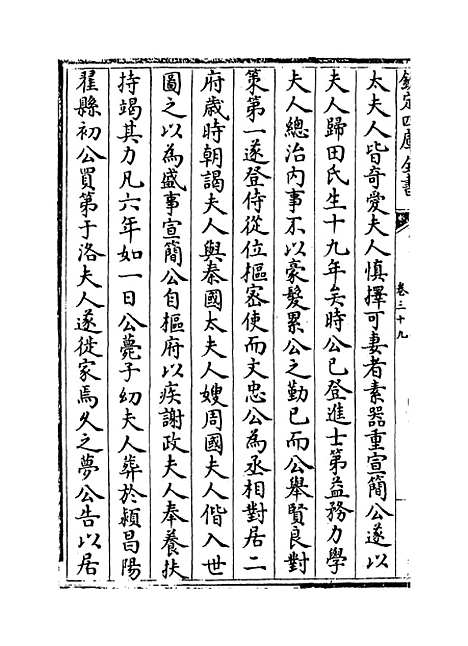 欽定四庫全書
卷三十九
太夫人皆奇愛夫人慎擇可妻者素器重宣簡公遂以
夫人歸田氏生十九年矣時公已登進士第益務力學
夫人總治内事不以豪髮累公之勤已而公舉賢良對
策第一遂登侍從位樞宻使而文忠公為丞相對居二
府歳時朝謁夫人與秦國太夫人嫂周國夫人偕入世
圖之以為盛事宣簡公自樞府以疾謝政夫人奉養扶
持竭其力凡六年如一日公薨子幼夫人葬於潁昌陽
翟縣初公買第于洛夫人遂徙家焉久之夢公告以居